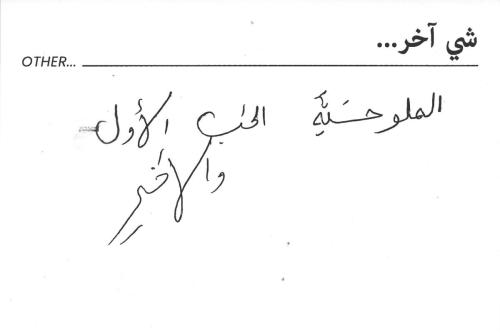 شي آخر...
OTHER...
الملوخيّة الحب الأول
والأخير